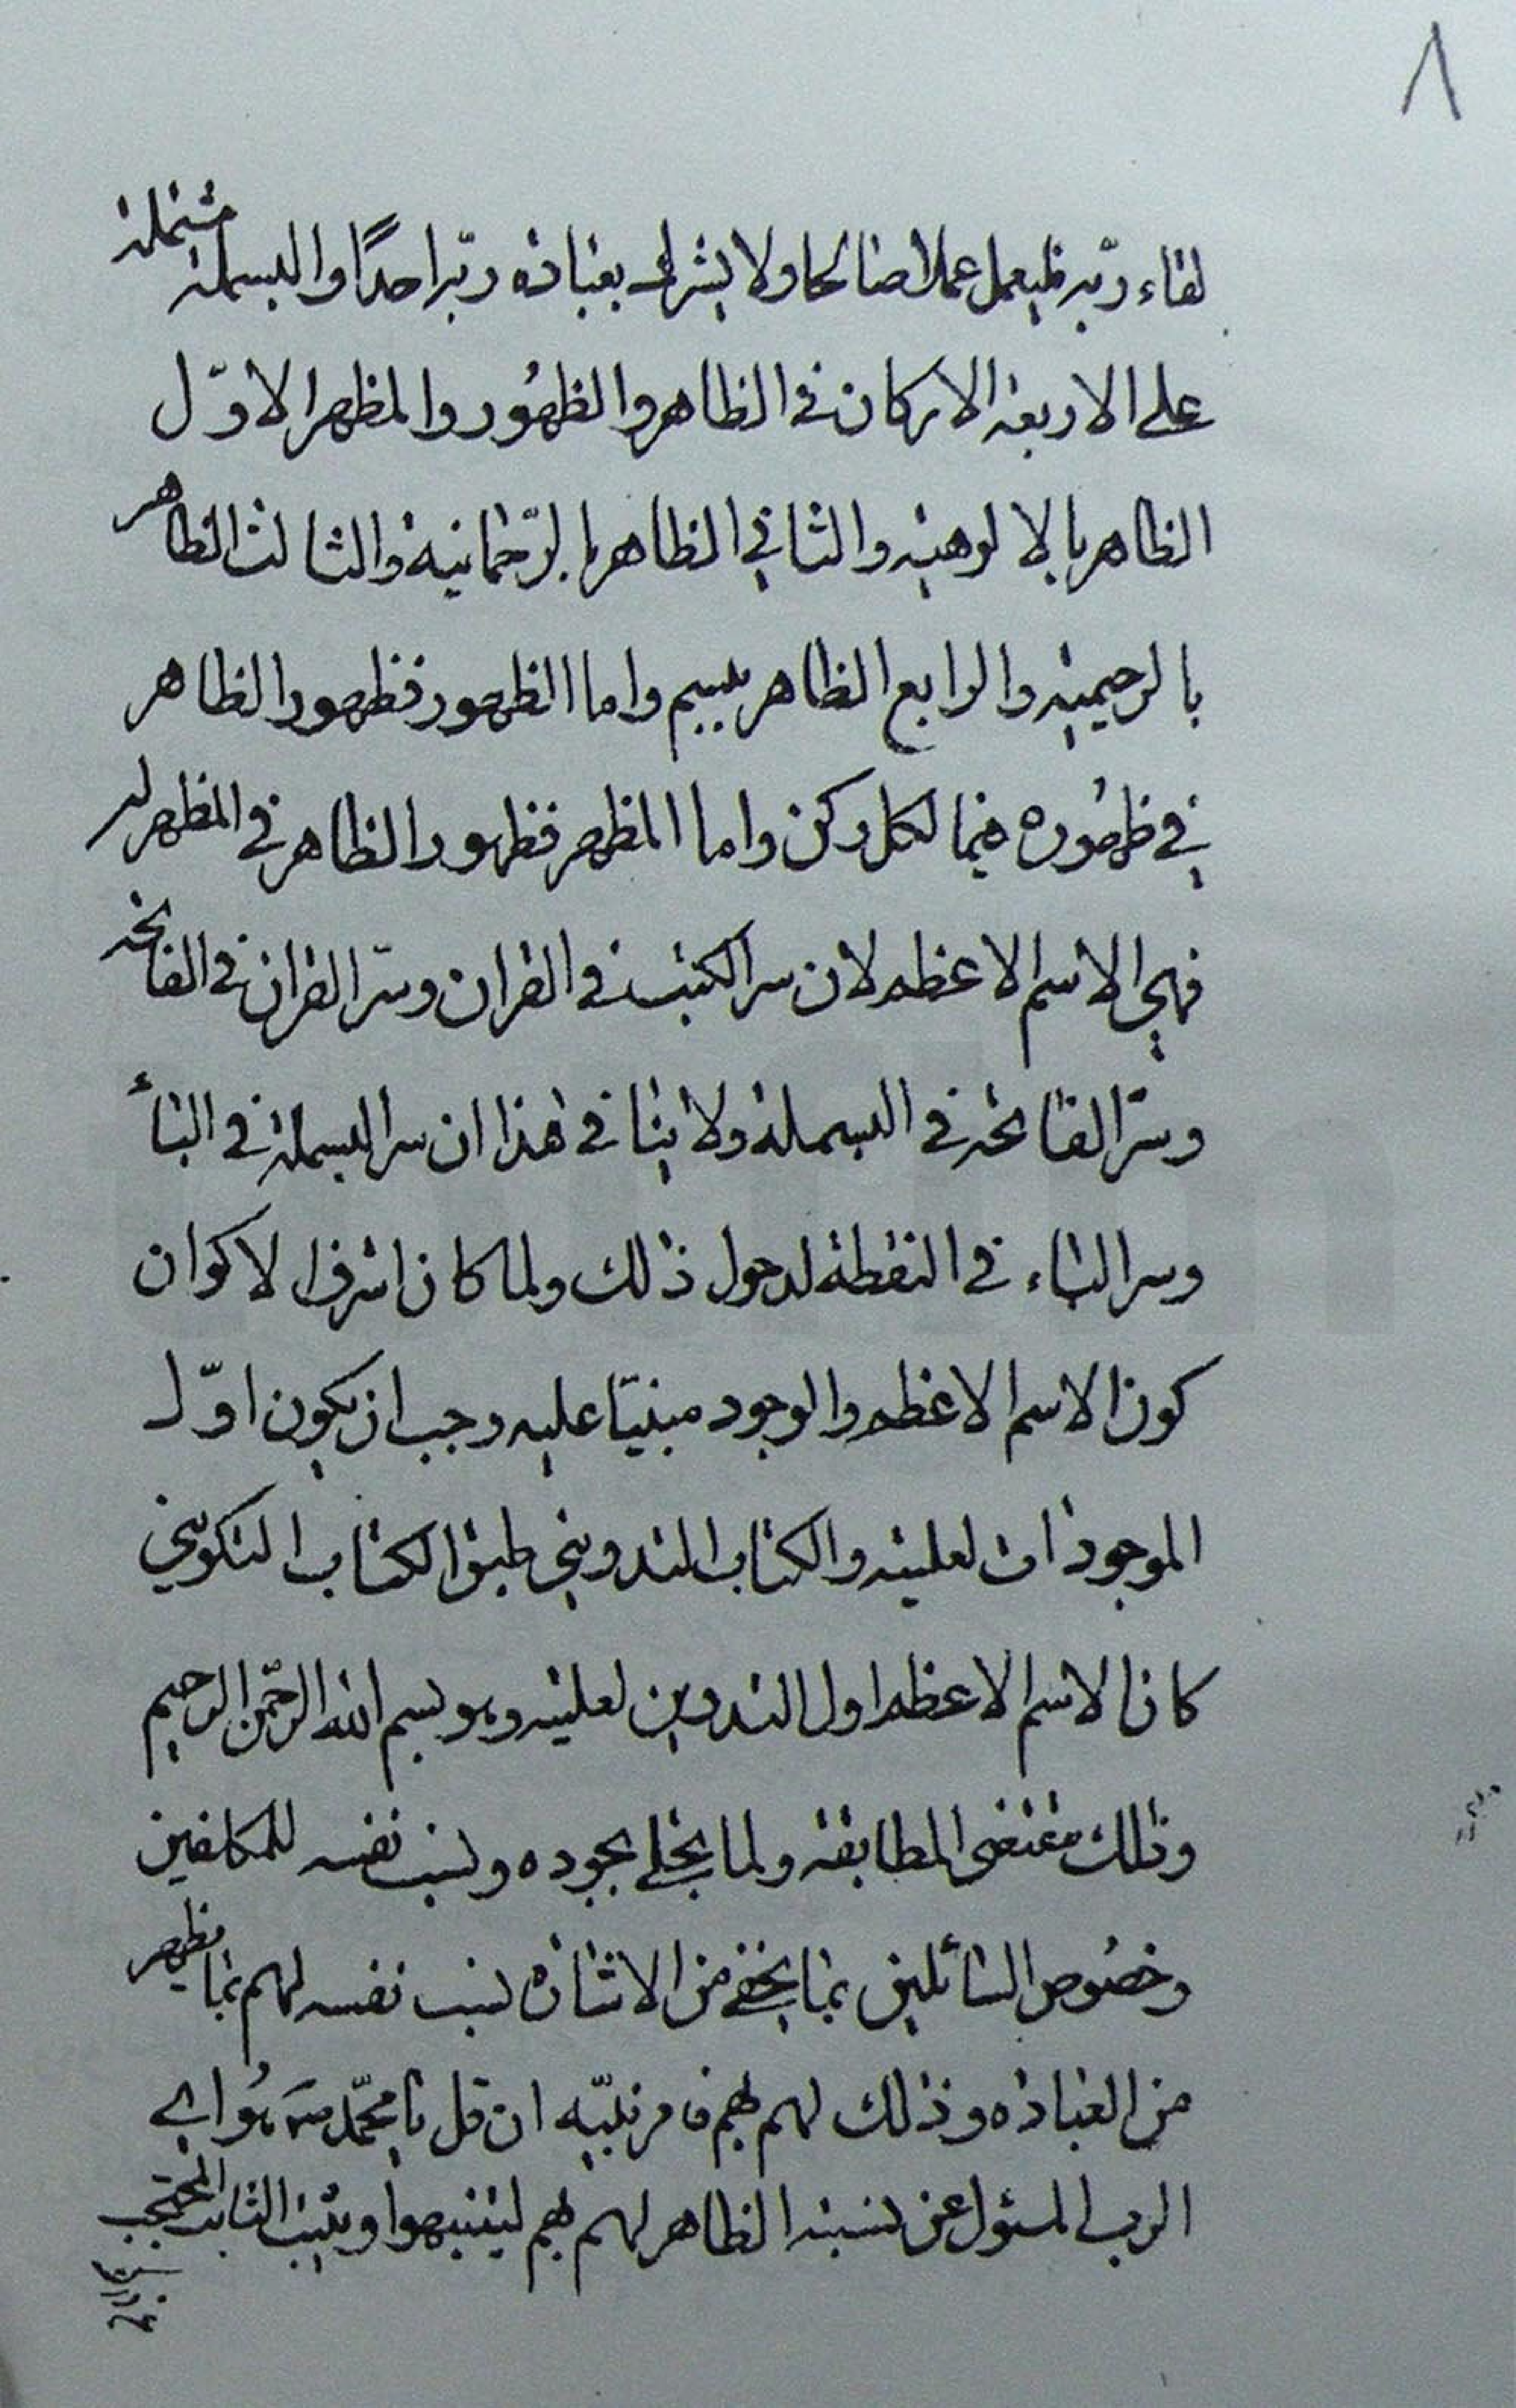 ٨
لقاء ربّه فليعمل عملا صالحا ولا يشرك بعبادة ربّه احدًا والبسملة مشتملة
على الاربعة الاركان في الظاهر والظهُور والمظهر الاوّل
الظاهر بالالوهية والثاني الظاهر بالرّحمانية والثالث الظاهر
بالرحيمية والرابع الظاهر ببسم واما الظهور فظهور الظاهر
في ظهُوره فيما لكل ركن واما المظهر فظهور الظاهر في المظهر له
فهي الاسم الاعظم لان سر الكتب في القران وسرّ القران في الفاتحه
وسرّ الفاتحة في البسملة ولا ينافي هذا ان سر البسملة في الباء
وسر الباء في النقطة لدخول ذلك ولما كان اشرف الاكوان
كون الاسم الاعظم والوجود مبنيّا عليه وجب ان يكون اوّل
الموجودات لعليته والكتاب التدويني طبق الكتاب التكويني
كان الاسم الاعظم اول التدوين لعليته وهو بسم الله الرحمن الرحيم
وذلك مقتضى المطابقة ولما تجلى بجوده ونسب نفسه للمكلفين
وخصُوص السائلين بما يخفى من الاشارة نسب نفسه لهم بما يظهر
من العبادة وذلك لهم بهم فامر نبيّه ان قل يا محمّد ص هُو اي
الرب المسئول عن نسبته الظاهر لهم بهم ليتنبهوا ويثبت الثابت المحتجب